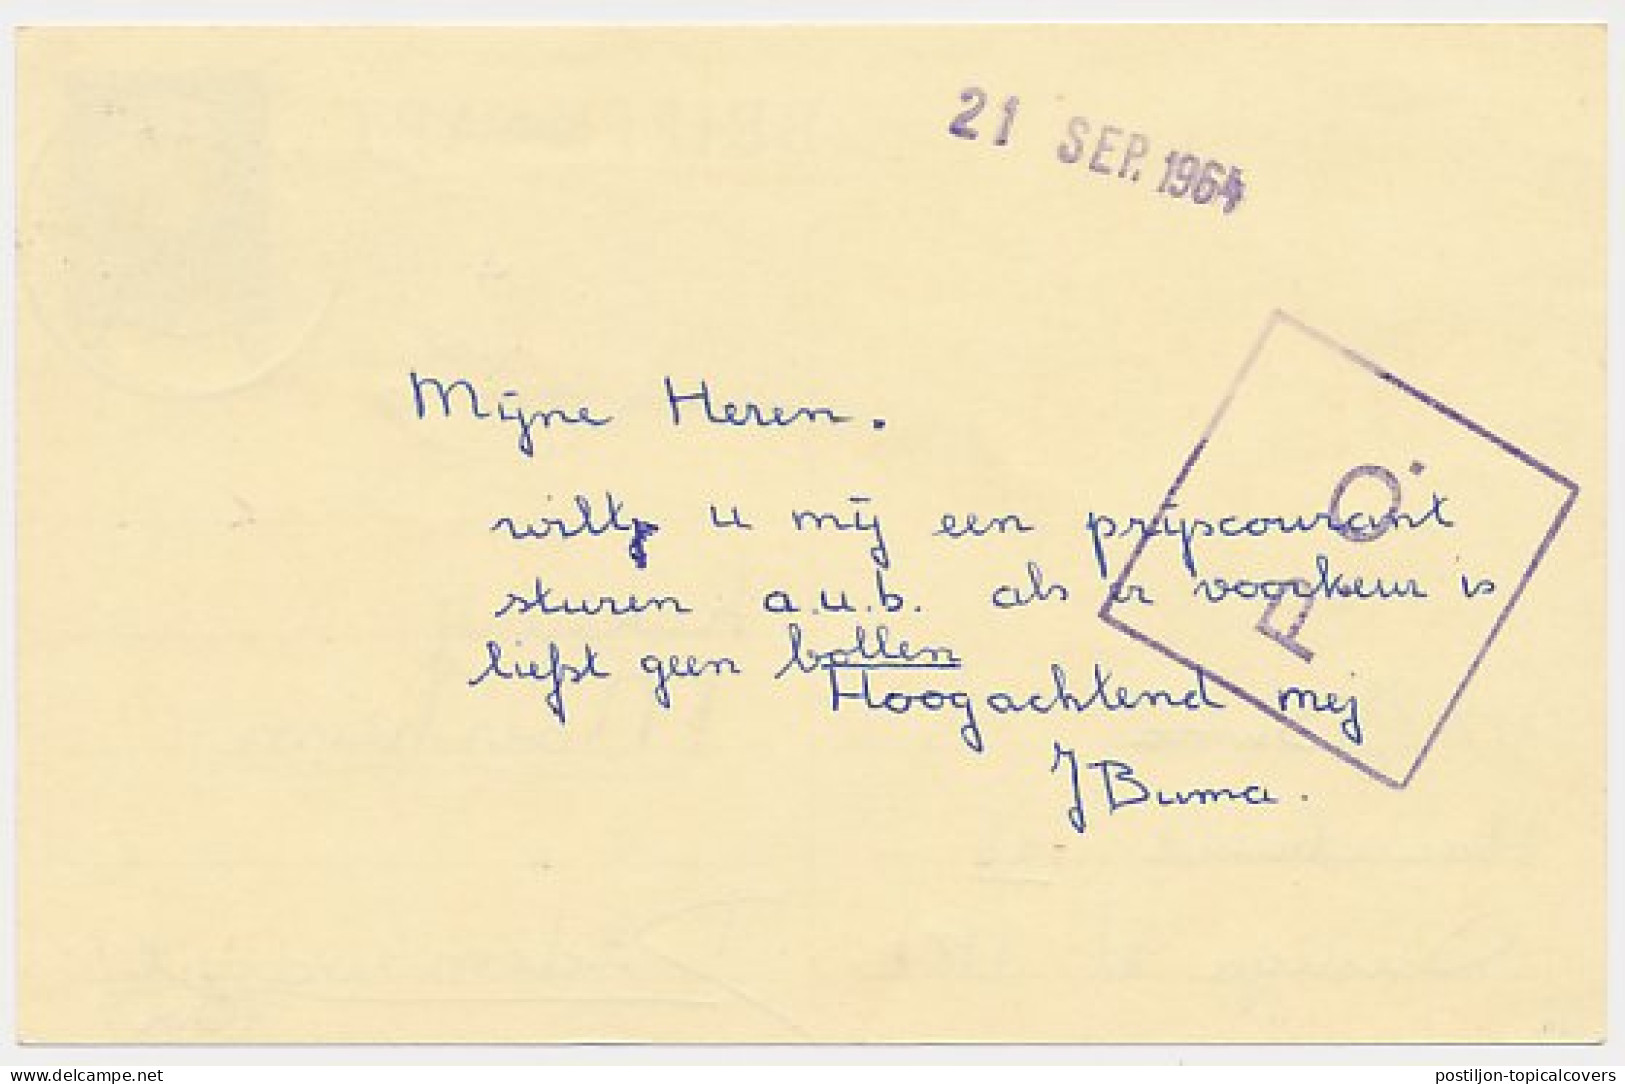 21 SEP. 1964
Mijne Heren.
wilt u mij een prijscourant
sturen a.u.b. als er voorkeur is
liefst geen bollen
Hoogachtend mej
J Buma.
P.O.
delcampe.net
postiljon-topicalcovers